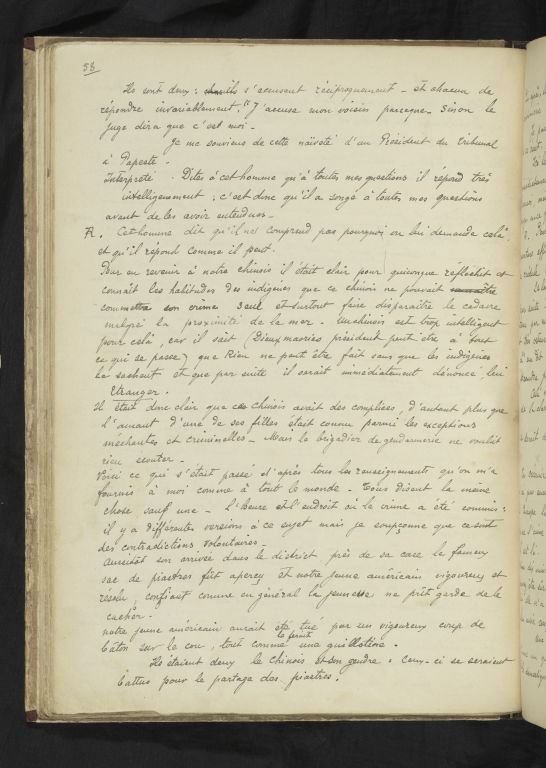 58
Ils sont deux : s'accusent réciproquement - et chacun de
répondre invariablement. "J'accuse mon voisin parceque sinon le
juge dira que c'est moi -
Je me souviens de cette naïveté d'un Président du Tribunal
à Papeete -
Interprète . Dites à cet homme qu'à toutes mes questions il répond très
intelligemment, c'est donc qu'il a songé à toutes mes questions
avant de les avoir entendues -
R. Cet homme dit qu'il ne comprend pas pourquoi on lui demande cela
et qu'il répond comme il peut.
Pour en revenir à notre chinois il était clair pour quiconque réfléchit et
connaît les habitudes des indigènes que ce chinois ne pouvait
commettre son crime seul et surtout faire disparaître le cadavre
malgré la proximité de la mer - un chinois est trop intelligent
pour celà, car il sait
ce qui se passe) que Rien ne peut être fait sans que les indigènes
le sachent et que par suite il serait immédiatement dénoncé lui
Etranger.
Il était donc clair que ce chinois avait des complices, d'autant plus que
l'amant d'une de ses filles était connu parmi les exceptions
méchantes et criminelles - Mais le brigadier de gendarmerie ne voulut
rien écouter -
Voici ce qui s'était passé d'après tous les renseignements qu'on m'a
fournis à moi comme à tout le monde - Tous disent la même
chose sauf une - L'heure et l'endroit où le crime a été commis :
il y a différentes versions à ce sujet mais je soupçonne que ce sont
des contradictions volontaires -
Aussitôt son arrivée dans le district près de sa case le fameux
sac de piastres fut aperçu et notre jeune américain vigoureux et
résolu, confiant comme en général la jeunesse ne prit garde de le
cacher -
notre jeune américain aurait été tué par un vigoureux coup de
bâton sur le cou, tout comme le ferait une guillotine -
Ils étaient deux le chinois et son gendre : ceux-ci se seraient
battus pour le partage des piastres.